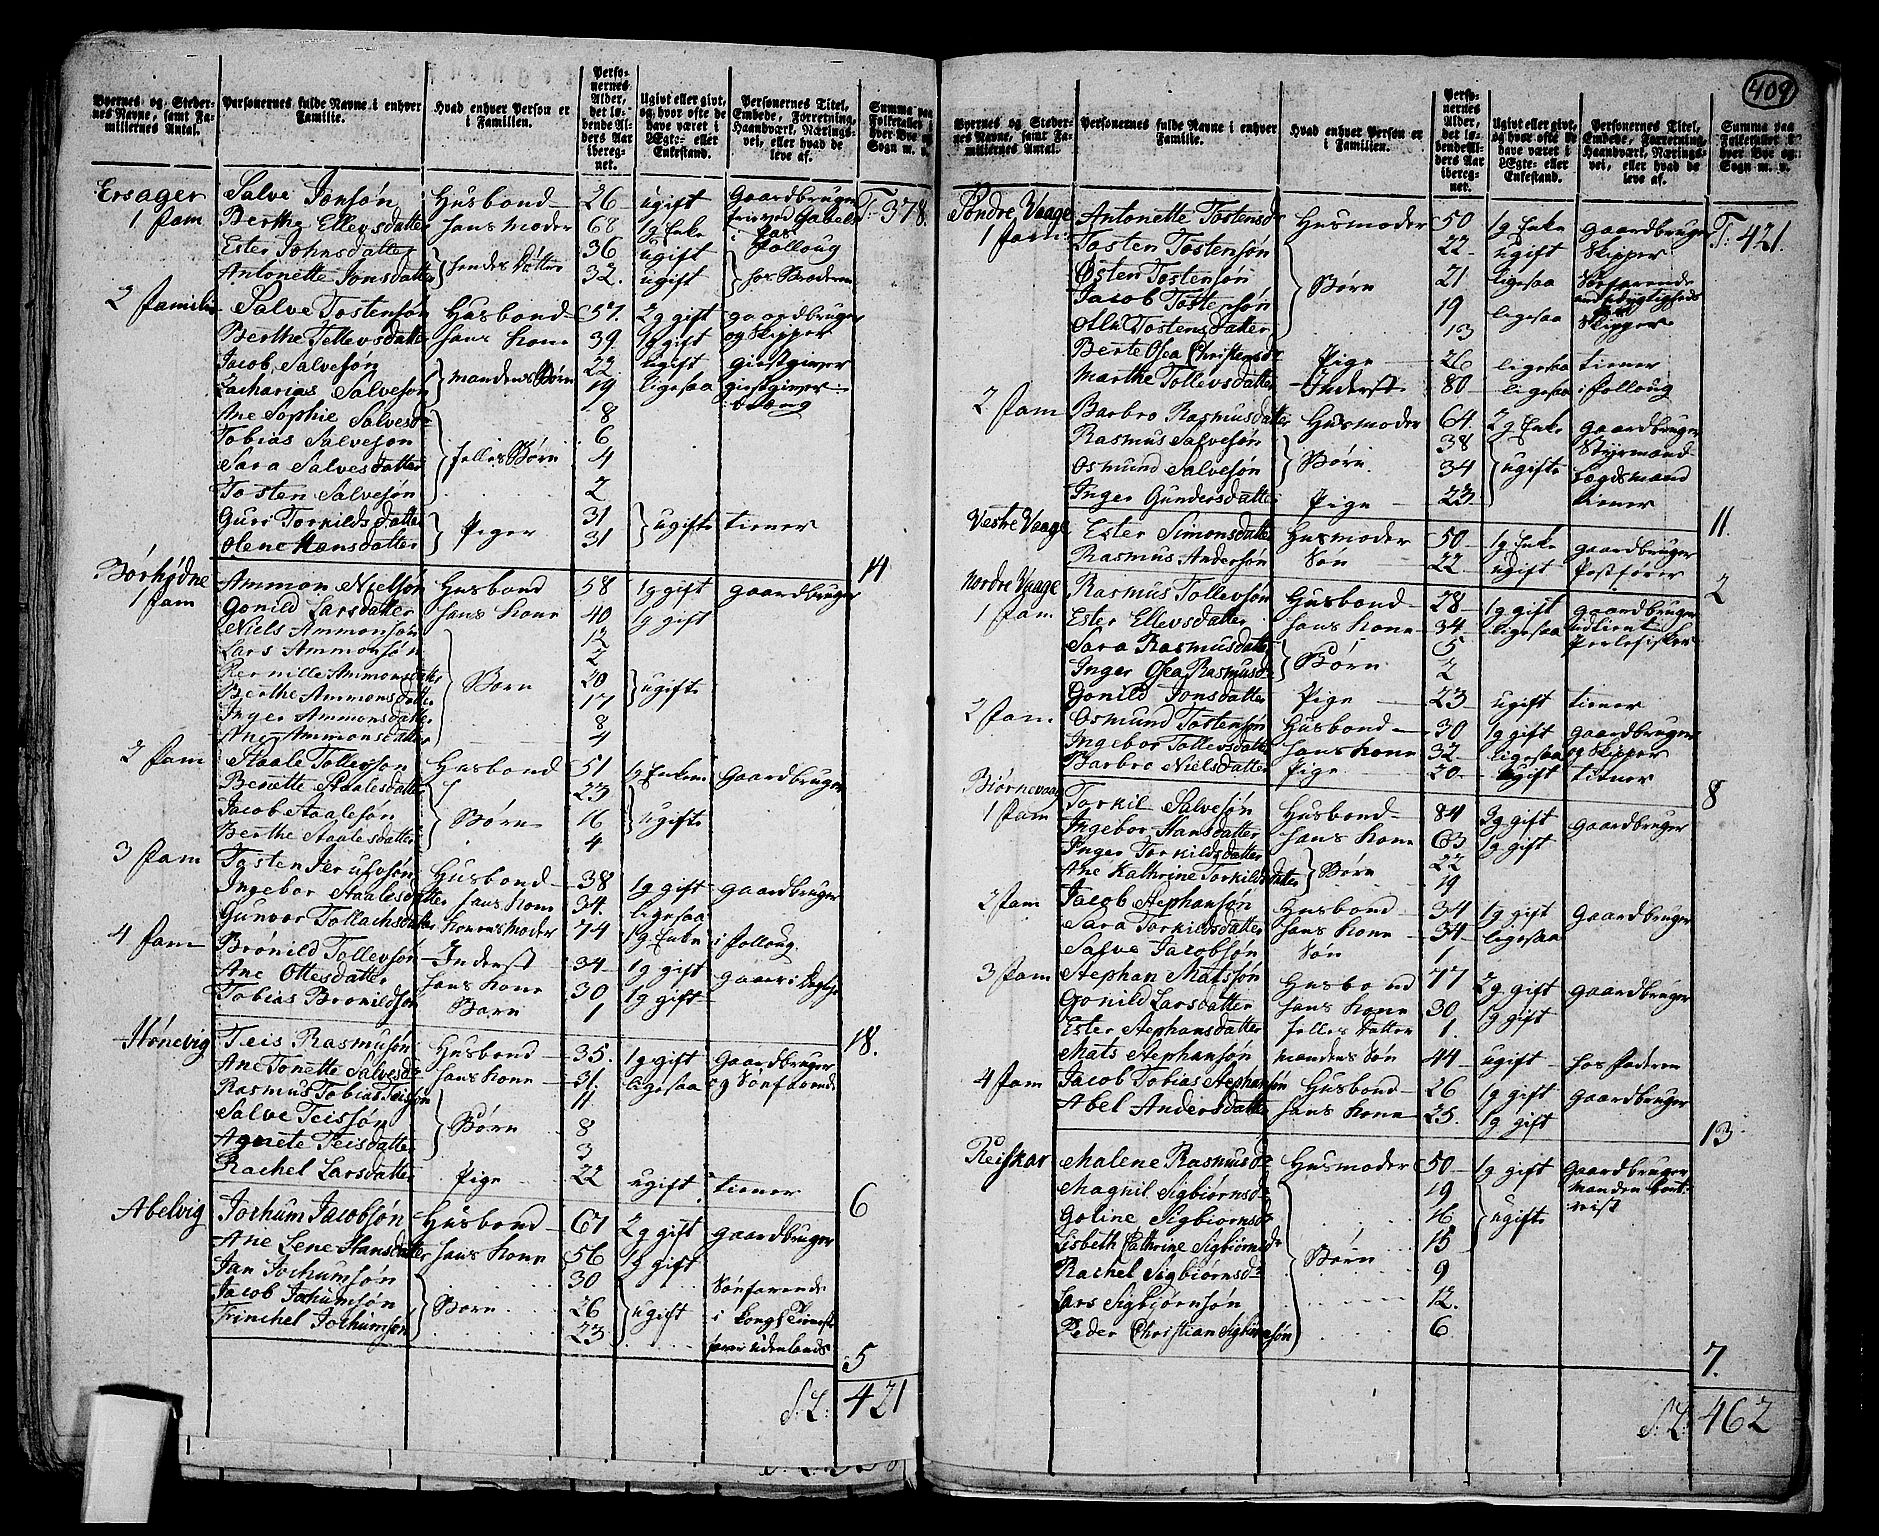 409
Byernes og Stedernes Navne, samt Familiernes Antal.
Personernes fulde Navne i enhver Familie.
Hvad enhver Person er i Familien.
Personernes Alder, det løbende Alders Aar iberegnet.
Ugivt eller givt, og hvor ofte de have været i Ægte- eller Enkestand.
Personernes Titel, Embede, Forretning, Haandværk, Nærings-vei, eller hvad de leve af.
Summa paa Folketallet i hver Bye og Sogn m. v.
Ersager Salve Jonsøn Husbond 26 ugift Gaardbruger T: 378.
1 fam Berthe Ellevsdatter hans Moder 68 1g Enke
Ester Johnsdatter hendes Døttre 36 ugift
Antonette Jonsdatter 32. ugift hos Broderen
2 familie Salve Tostensøn Husbond 57. 2g gift gaardbruger
Berthe Tellevsdatter hans Kone 39 1g gift og Skipper
Jacob Salvesøn Mandens Børn 22 ugift giestgiver
Zacharias Salvesøn 19 ligesaa giestgiver
Ane Sophie Salvesdr 8
Tobias Salvesøn 6
Sara Salvesdatter felles Børn 4
Tosten Salvesøn 2
Guro Torkildsdatter Piger 31 ugifte tiener
Olene Hansdatter 31
14
Børhødne Ammon Nielsøn Husbond 58 1g gift gaardbruger
1 fam Gonild Larsdatter hans Kone 40 1g gift
Niels Ammonsøn 12
Lars Ammonsøn 2
Pernille Ammonsdatter Børn 20 ugifte
Berthe Ammonsdatter 17
Inger Ammonsdatter 8
Ane Ammonsdatter 4
2 fam Staale Tollevson Husbond 51 1g Enkem gaardbruger
Berette Staalesdatter 23
Jacob Staalesøn Børn 16 ugifte
Berthe Staalesdatter 4
3 fam Tosten Husbond 38 1g gift gaardbruger
Ingebor Staalesdatter hans Kone 34. ligesaa
Gunvor Tollachsdatter Konens Moder 74 1g Enke i folloug
4 fam Brønild Tollevsøn Inderst 34 1g gift
Ane Ottesdatter hans Kone 30 1g gift
Tobias Bronildson Barn 1
18.
Hønevig Teis Rasmusøn Husbond 35. 1g gift gaardbruger
Ane Tonette Salvesdr hans Kone 31. ligesaa og Søefarende
Rasmus Tobias Teisson 11
Salve Teissøn Børn 8
Agnete Teisdatter 3
Rachel Larsdatter Pige 22 ugift tiener
6
Abelvig Jochum Jacobsøn Husbond 67 2g gift gaardbruger
Ane Lene Hansdatter hans Kone 56 1g gift
Jan Jochumsøn 30 Søefarende
Jacob Jochumsøn Børn 26 ugift i Kongl Tieneste
Trinchel Jochumsøn 23 udenlands
5
S: L: 421
Byernes og Stedernes Navne, samt Familiernes Antal.
Personernes fulde Navne i enhver Familie.
Hvad enhver Person er i Familien.
Personernes Alder, det løbende Alders Aar iberegnet.
Ugivt eller givt, og hvor ofte de have været i Ægte- eller Enkestand.
Personernes Titel, Embede, Forretning, Haandværk, Nærings-vei, eller hvad de leve af.
Summa paa Folketallet i hver Bye og Sogn m. v.
Søndre Vaage Antonette Tostensd Husmoder 50 1g Enke gaardbruger T: 421.
1 fam Tosten Tostensøn 22 ugift Skipper
Østen Tostensøn Børn 21 ligesaa
Jacob Tostensøn 19 ligesaa
Tostensdatter 13
Berte Osea Christensdr Pige 26 ligesaa tiener
Marthe Tollevsdatter Inderst 80 ligesaa i folloug
2 fam Barbro Rasmusdatter Husmoder 64. 2g Enke gaardbruger
Rasmus Salvesøn Børn 38 ugifte Styrmand
Osmund Salvesøn 34 Lægdsmand
Inger Gundersdatter Pige 23 tiener
11.
Vestre Vaage Ester Simonsdatter Husmoder 50 1g Enke gaardbruger
Rasmus Andersøn Søn 22 ugift Postfører
2
Nordre Vaage Rasmus Tollevsøn Husbond 28 1g gift gaardbruger
1 fam Ester Ellevsdatter hans Kone 34 ligesaa
Sara Rasmusdatter Børn 5 Perlefisker
Inger Osea Rasmusdr 2
Gonild Jonsdatter Pige 23 ugift tiener
2 fam Osmund Tostensøn Husbond 30 1g gift gaardbruger
Ingebor Tollevsdatter hans Kone 32 ligesaa og Skipper
Barbro Nielsdatter Pige 20 ugift tiener
8
Biørnevaag Torkil Salvesøn Husbond 84 3g gift gaardbruger
1 fam Ingebor Hansdatter hans Kone 63 1g gift
Inger Torkildsdatter Børn 22
Ane Kathrine Torkildsdatter 19
2 fam Jacob Stephansøn Husbond 34 1g gift gaardbruger
Sara Torkildsdatter hans Kone 34 ligesaa
Salve Jacobsøn Søn 1
3 fam Stephan Matssøn Husbond 77 2g gift gaardbruger
Gonild Larsdatter hans Kone 30 1g gift
Ester Stephansdatter felles datter 1.
Mats Stephansøn mandens Søn 44 ugift hos faderen
4 fam Jacob Tobias Stephansøn Husbond 26 1g gift gaardbruger
Abel Andersdatter hans Kone 25. 1g gift
13
Reiskar Malene Rasmusdr Husmoder 50 1g gift Gaardbruger
Magnil Sigbiørnsdr 19 manden bort
Goline Sigbiørnsdr 16 ugifte reist
Lisbeth Cathrine Sigbiørnsdr 15
Rachel Sigbiørnsdr Børn 9
Lars Sigbiørnsøn 12.
Peder Christian Sigbiørnsøn 6
7.
S: L: 462